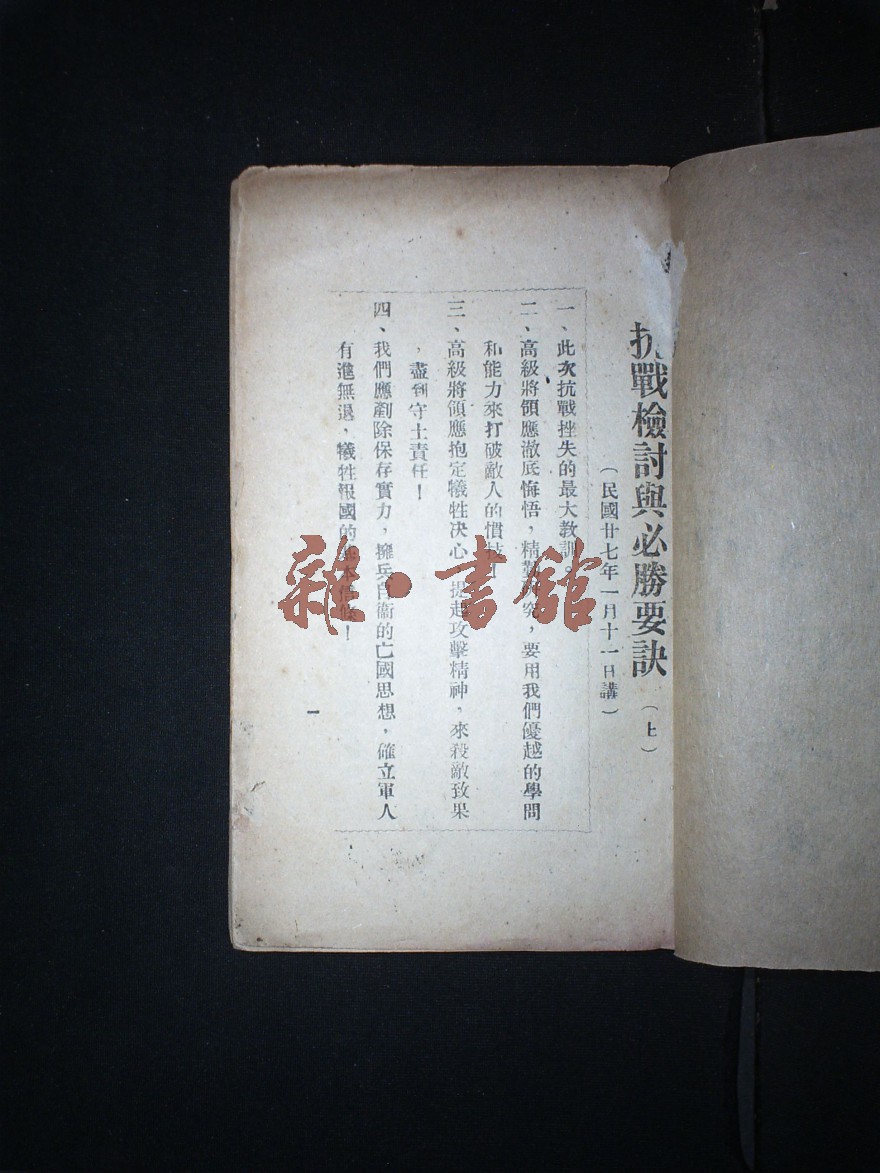 抗戰檢討與必勝要訣（上）
（民國廿七年一月十一日講）
一、此次抗戰挫失的最大教訓。
二、高級將領應澈底悔悟，精勤研究，要用我們優越的學問
和能力來打破敵人的慣技！
三、高級將領應抱定犧牲決心，提起攻擊精神，來殺敵致果
，盡到守土責任！
四、我們應剷除保存實力，擁兵自衞的亡國思想，確立軍人
有進無退，犧牲報國的基本信條！
一
雜·書館